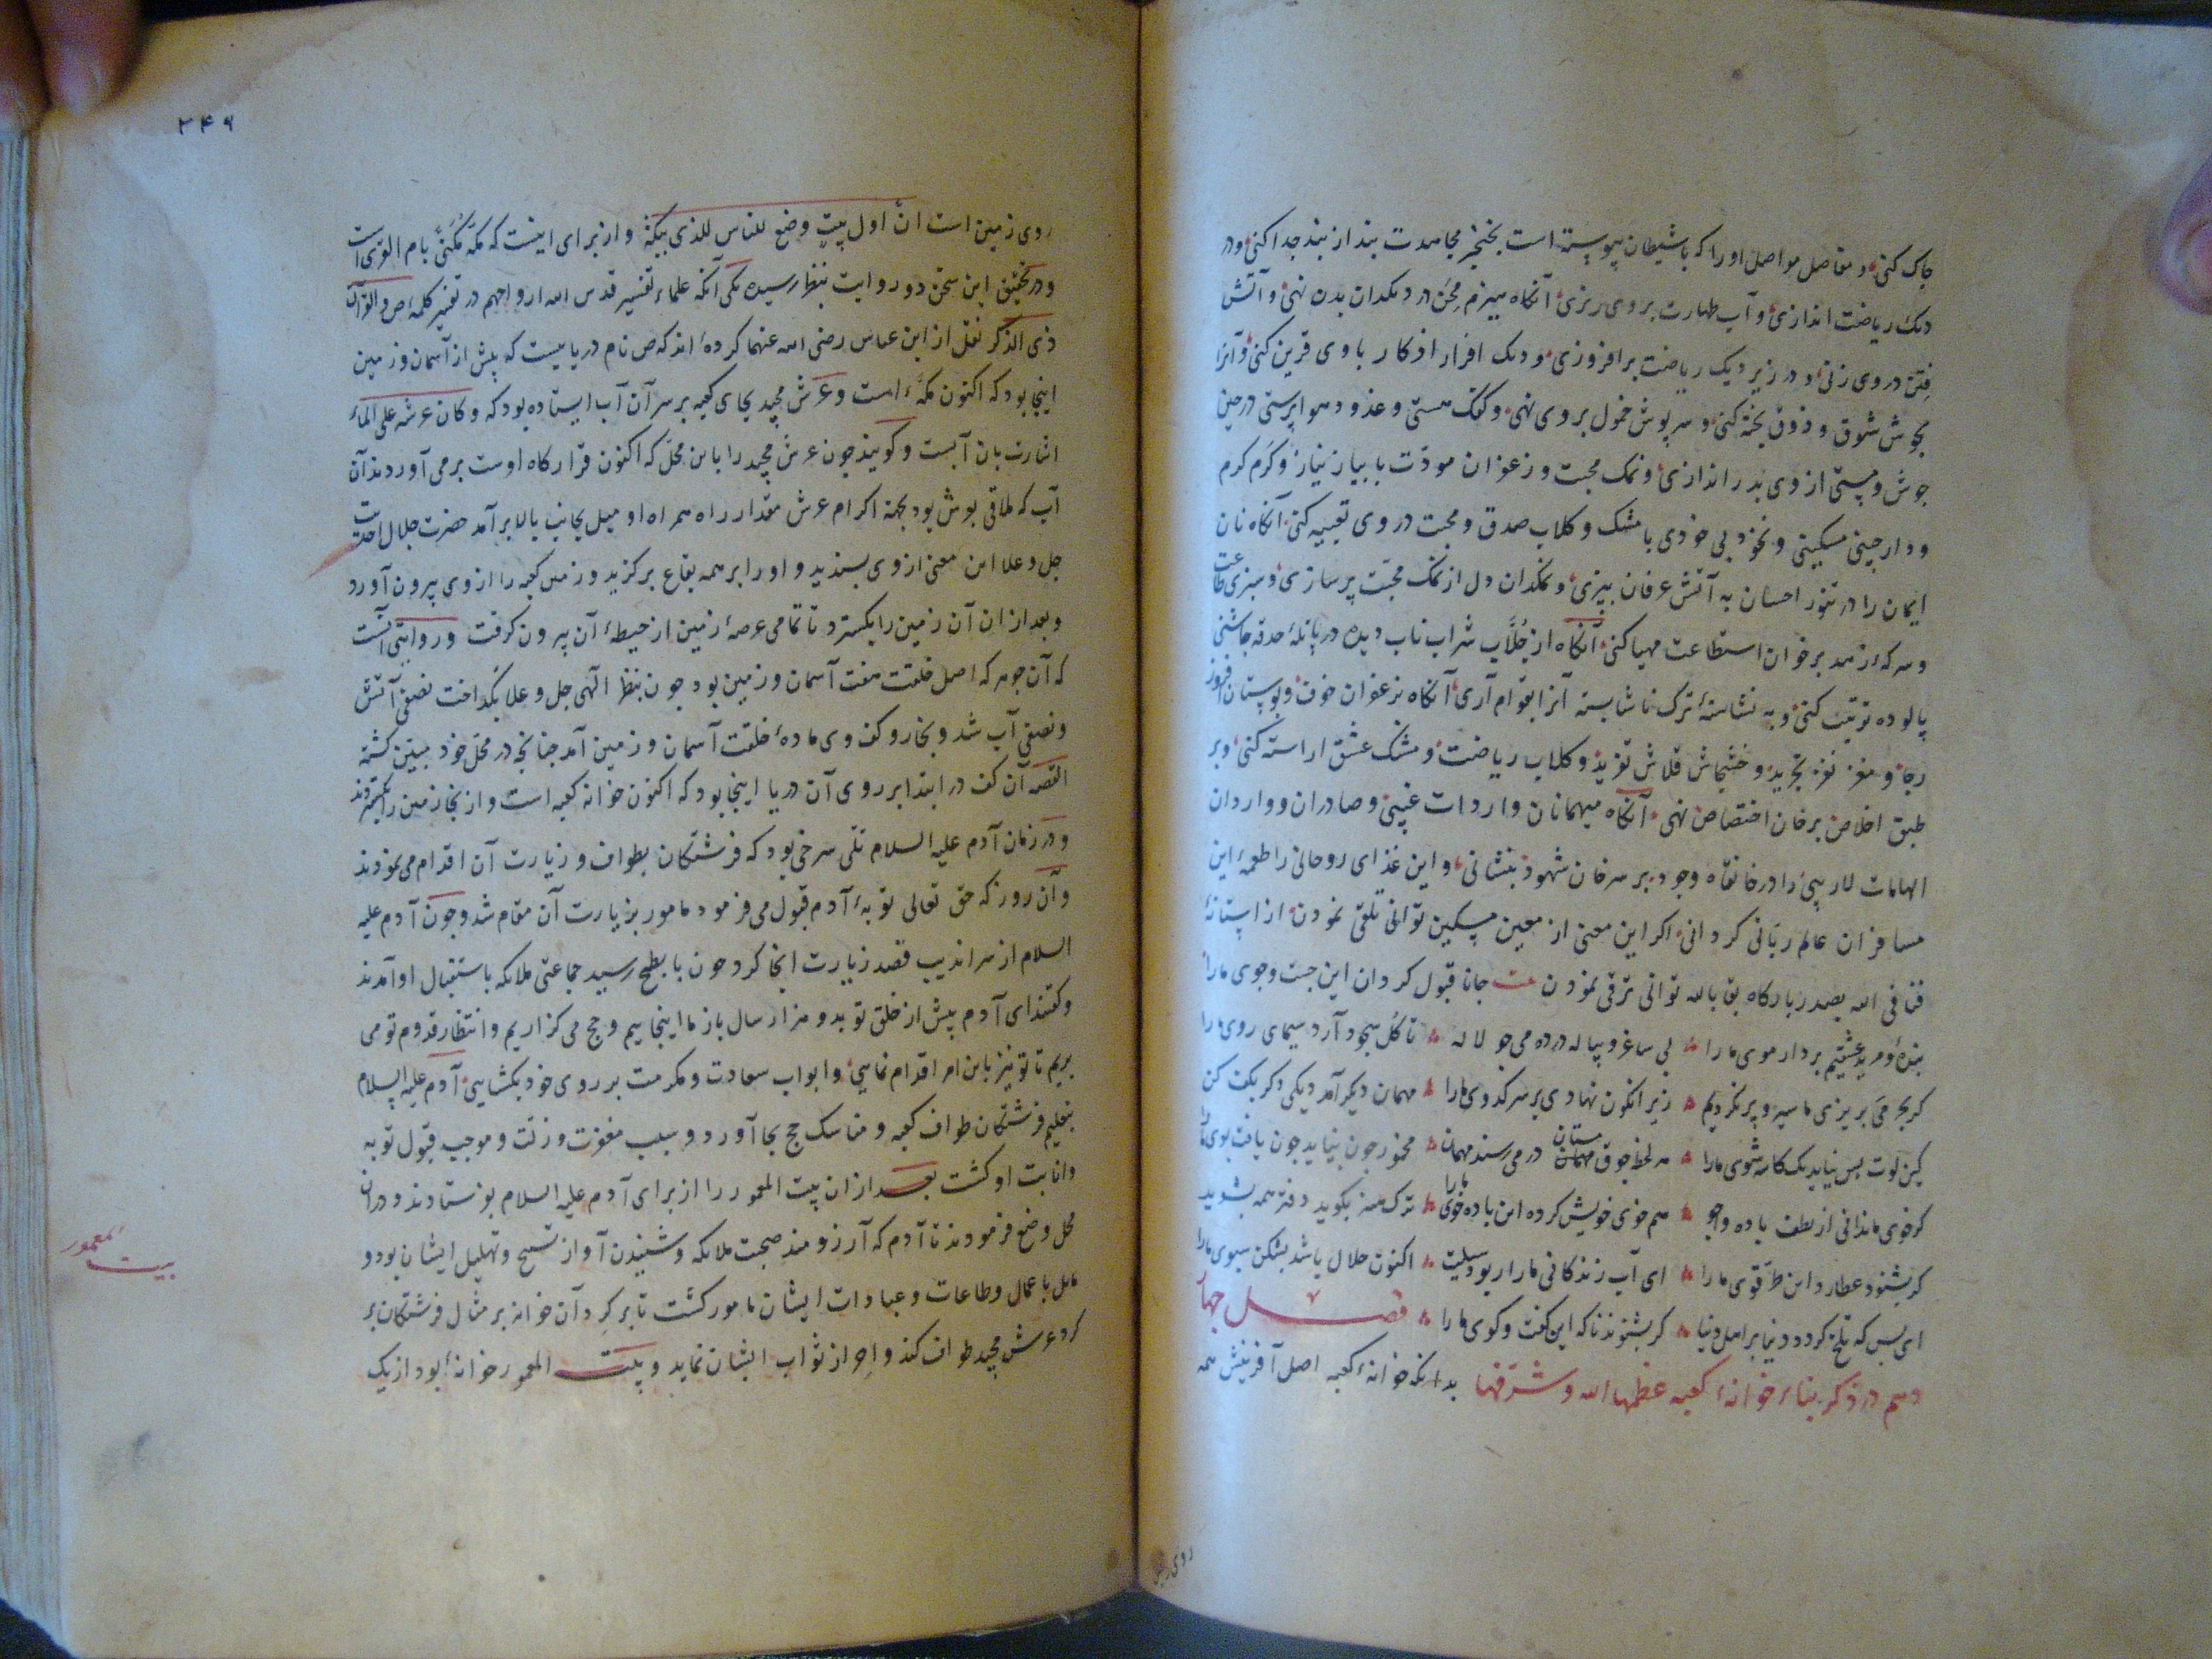 چاک کنی و مفاصل مواصل او را که با شیطان پیوسته است بخنجر مجاهدت بند از بند جدا کنی و در
دیک ریاضت اندازی و آب طهارت بروی ریزی آنکاه هیزم محن در دیکدان بدن نهی و آتش
فتن در وی زنی و در زیر دیک ریاضت برافروزی و دیک افزار افکار با وی قرین کنی و آنرا
بجوش شوق و ذوق پخته کنی و سرپوش خمول بروی نهی و کفک هستی و هواپرستی در حین
جوش و مستی از وی بدر اندازی و نمک محبت و زعفران مودّت با پیاز نیاز و کرم کرم
و دارچینی مسکینی و نخود بی خودی با مشک و کلاب صدق و محبت در وی تعبیه کنی آنکاه نان
ایمان را در تنور احسان به آتش عرفان بپزی و نمکدان دل از نمک محبّت پر سازی و سبزی طاعت
و سرکهٔ زهد بر خوان استطاعت مهیا کنی آنکاه از جُلّاب شراب ناب دیده در پاتلهٔ حدقه چاشنی
پالوده ترتیب کنی و به نشاستهٔ ترک ناشایسته آنرا بقوام آری آنکاه بزعفران خوف و بوستان افروز
رجا و مغز نغز تجرید و خشخاش قلاش تفرید و کلاب ریاضت و مشک عشق اراسته کنی و بر
طبق اخلاص بر خان اختصاص نهی آنکاه میهمانان واردات غیبی و صادران و واردان
الهامات لاریبی را در خانقاه وجود بر سر خان شهود بنشانی و این غذای روحانی را طعمهٔ این
مسافران عالم ربّانی کردانی اکر این معنی از معین مسکین توانی تلقی نمودن از استانهٔ
فنا فی الله بصدر بارکاه بقا بالله توانی ترقی نمودن جانا قبول کردان این جست وجوی ما را
بندهٔ و مرید عشقیم بردار موی ما را بی ساغر و پیاله در ده می چو لاله تا کل سجود آرد سیمای روی ما را
کر بحر می بریزی ما سیر و پر نکردیم زیرا نکون نهادی بر سر کدوی ما را مهمان دیکر آمد دیکی دکر بکف کن
کین لوت بس نیاید یک کاسه شوی ما را هر لحظه جوق مستان در می رسند مهمان مخمور چون نیاید چون یافت بوی ما را
کر خوی ما ندانی از لطف باده واجو هم خوی خویش کرده این باده خوی ما را ترک هنر بکوید دفتر همه بشوید
کر بشنود عطارد این طرّقوی ما را ای آب زندکانی ما را ربود سیلت اکنون حلال باشد بشکن سبوی ما را
ای بس که تلخ کردد دنیا بر اهل دنیا کر بشنوند ناکه این کفت وکوی ما را فصل چهار
دهم در ذکر بناء خانهٔ کعبه عظمها الله و شرّفها بدانکه خانهٔ کعبه اصل آفرینش همه
روی زمین
۲۴۶
روی زمین است انّ اول بیت وضع للناس للذی ببکة و از برای اینست که مکه مکنّی بام القری است
و در تحقیق این سخن دو روایت بنظر رسیده یکی آنکه علماء تفسیر قدس الله ارواحهم در تفسیر کلمهٔ ص والقرآن
ذی الذکر نقل از ابن عباس رضی الله عنهما کرده‌اند که ص نام دریاییست که پیش از آسمان و زمین
اینجا بود که اکنون مکّه است و عرش مجید بجای کعبه بر سر آن آب ایستاده بود که و کان عرشه علی الماء
اشارت بان آبست و کویند چون عرش مجید را باین محلّ که اکنون قرارکاه اوست برمی آوردند آن
آب که ملاقی بوش بود بجهة اکرام عرش مقدار راه همراه او میل بجانب بالا برآمد حضرت جلال احدیت
جل و علا این معنی از وی پسندید و او را بر همه بقاع برکزید و زمین کعبه را از وی بیرون آورد
و بعد از ان آن زمین را بکسترد تا تمامی عرصهٔ زمین از حیطهٔ آن بیرون کرفت و روایتی آنست
که آن جوهر که اصل خلقت هفت آسمان و زمین بود چون بنظر الهی جل و علا بکداخت نصفی آتش
و نصفی آب شد و بخار و کف وی مادهٔ خلقت آسمان و زمین آمد چنانچه در محلّ خود مبیّن کشته
القصه آن کف در ابتدا بر روی آن دریا اینجا بود که اکنون خانه کعبه است و از نجا زمین را بکستردند
و در زمان آدم علیه السلام تلّی سرخی بود که فرشتکان بطواف و زیارت آن اقدام می نمودند
و آن روز که حق تعالی توبهٔ آدم قبول می فرمود مامور بزیارت آن مقام شد و چون آدم علیه
السلام از سراندیب قصد زیارت انجا کرد چون بابطح رسید جماعتی ملایکه باستقبال او آمدند
و کفتند ای آدم پیش از خلق تو بدو هزار سال باز ما اینجاییم و حج می کزاریم و انتظار قدوم تو می
بریم تا تو نیز باین امر اقدام نمایی و ابواب سعادت و مکرمت بر روی خود بکشایی آدم علیه السلام
بتعلیم فرشتکان طواف کعبه و مناسک حج بجا آورد و سبب مغفرت و زلت و موجب قبول توبه
و انابت او کشت بعد از ان بیت المعمور را از برای آدم علیه السلام بفرستادند و در ان
محل وضع فرمودند تا آدم که آرزومند صحبت ملایکه و شنیدن آواز تسبیح و تهلیل ایشان بود و
مایل باعمال و طاعات و عبادات ایشان مامور کشت تا بر کرد آن خانه بر مثال فرشتکان بر
کرد عرش مجید طواف کند و احراز ثواب ایشان نماید و بیت المعمور خانهٔ بود از یک
بیت معمور